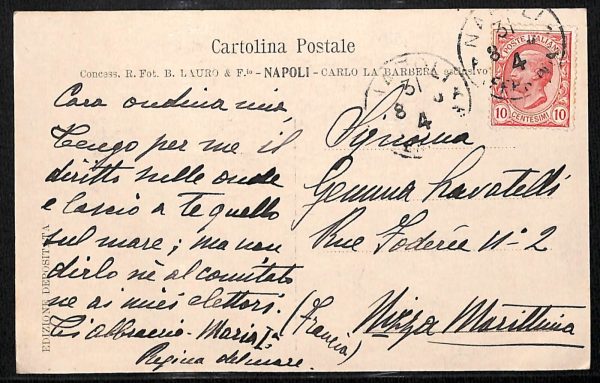 Cartolina Postale
Concess. R. Fot. B. LAURO & F.lo - NAPOLI - CARLO LA BARBERA esclusivo
EDIZIONE DEPOSITATA
Cara ondina mia,
Tengo per me il
diritto sulle onde
e lascio a te quello
sul mare; ma non
dirlo nè al comitato
ne ai miei elettori.
Ti abbraccio - Maria Ia
Regina del mare.
Signora
Gemma Lavatelli
Rue Foderée No 2
Nizza Marittima
(Francia)
POSTE ITALIANE
10 CENTESIMI 10
NAPOLI
31
8
4
NAPOLI
31
8
4